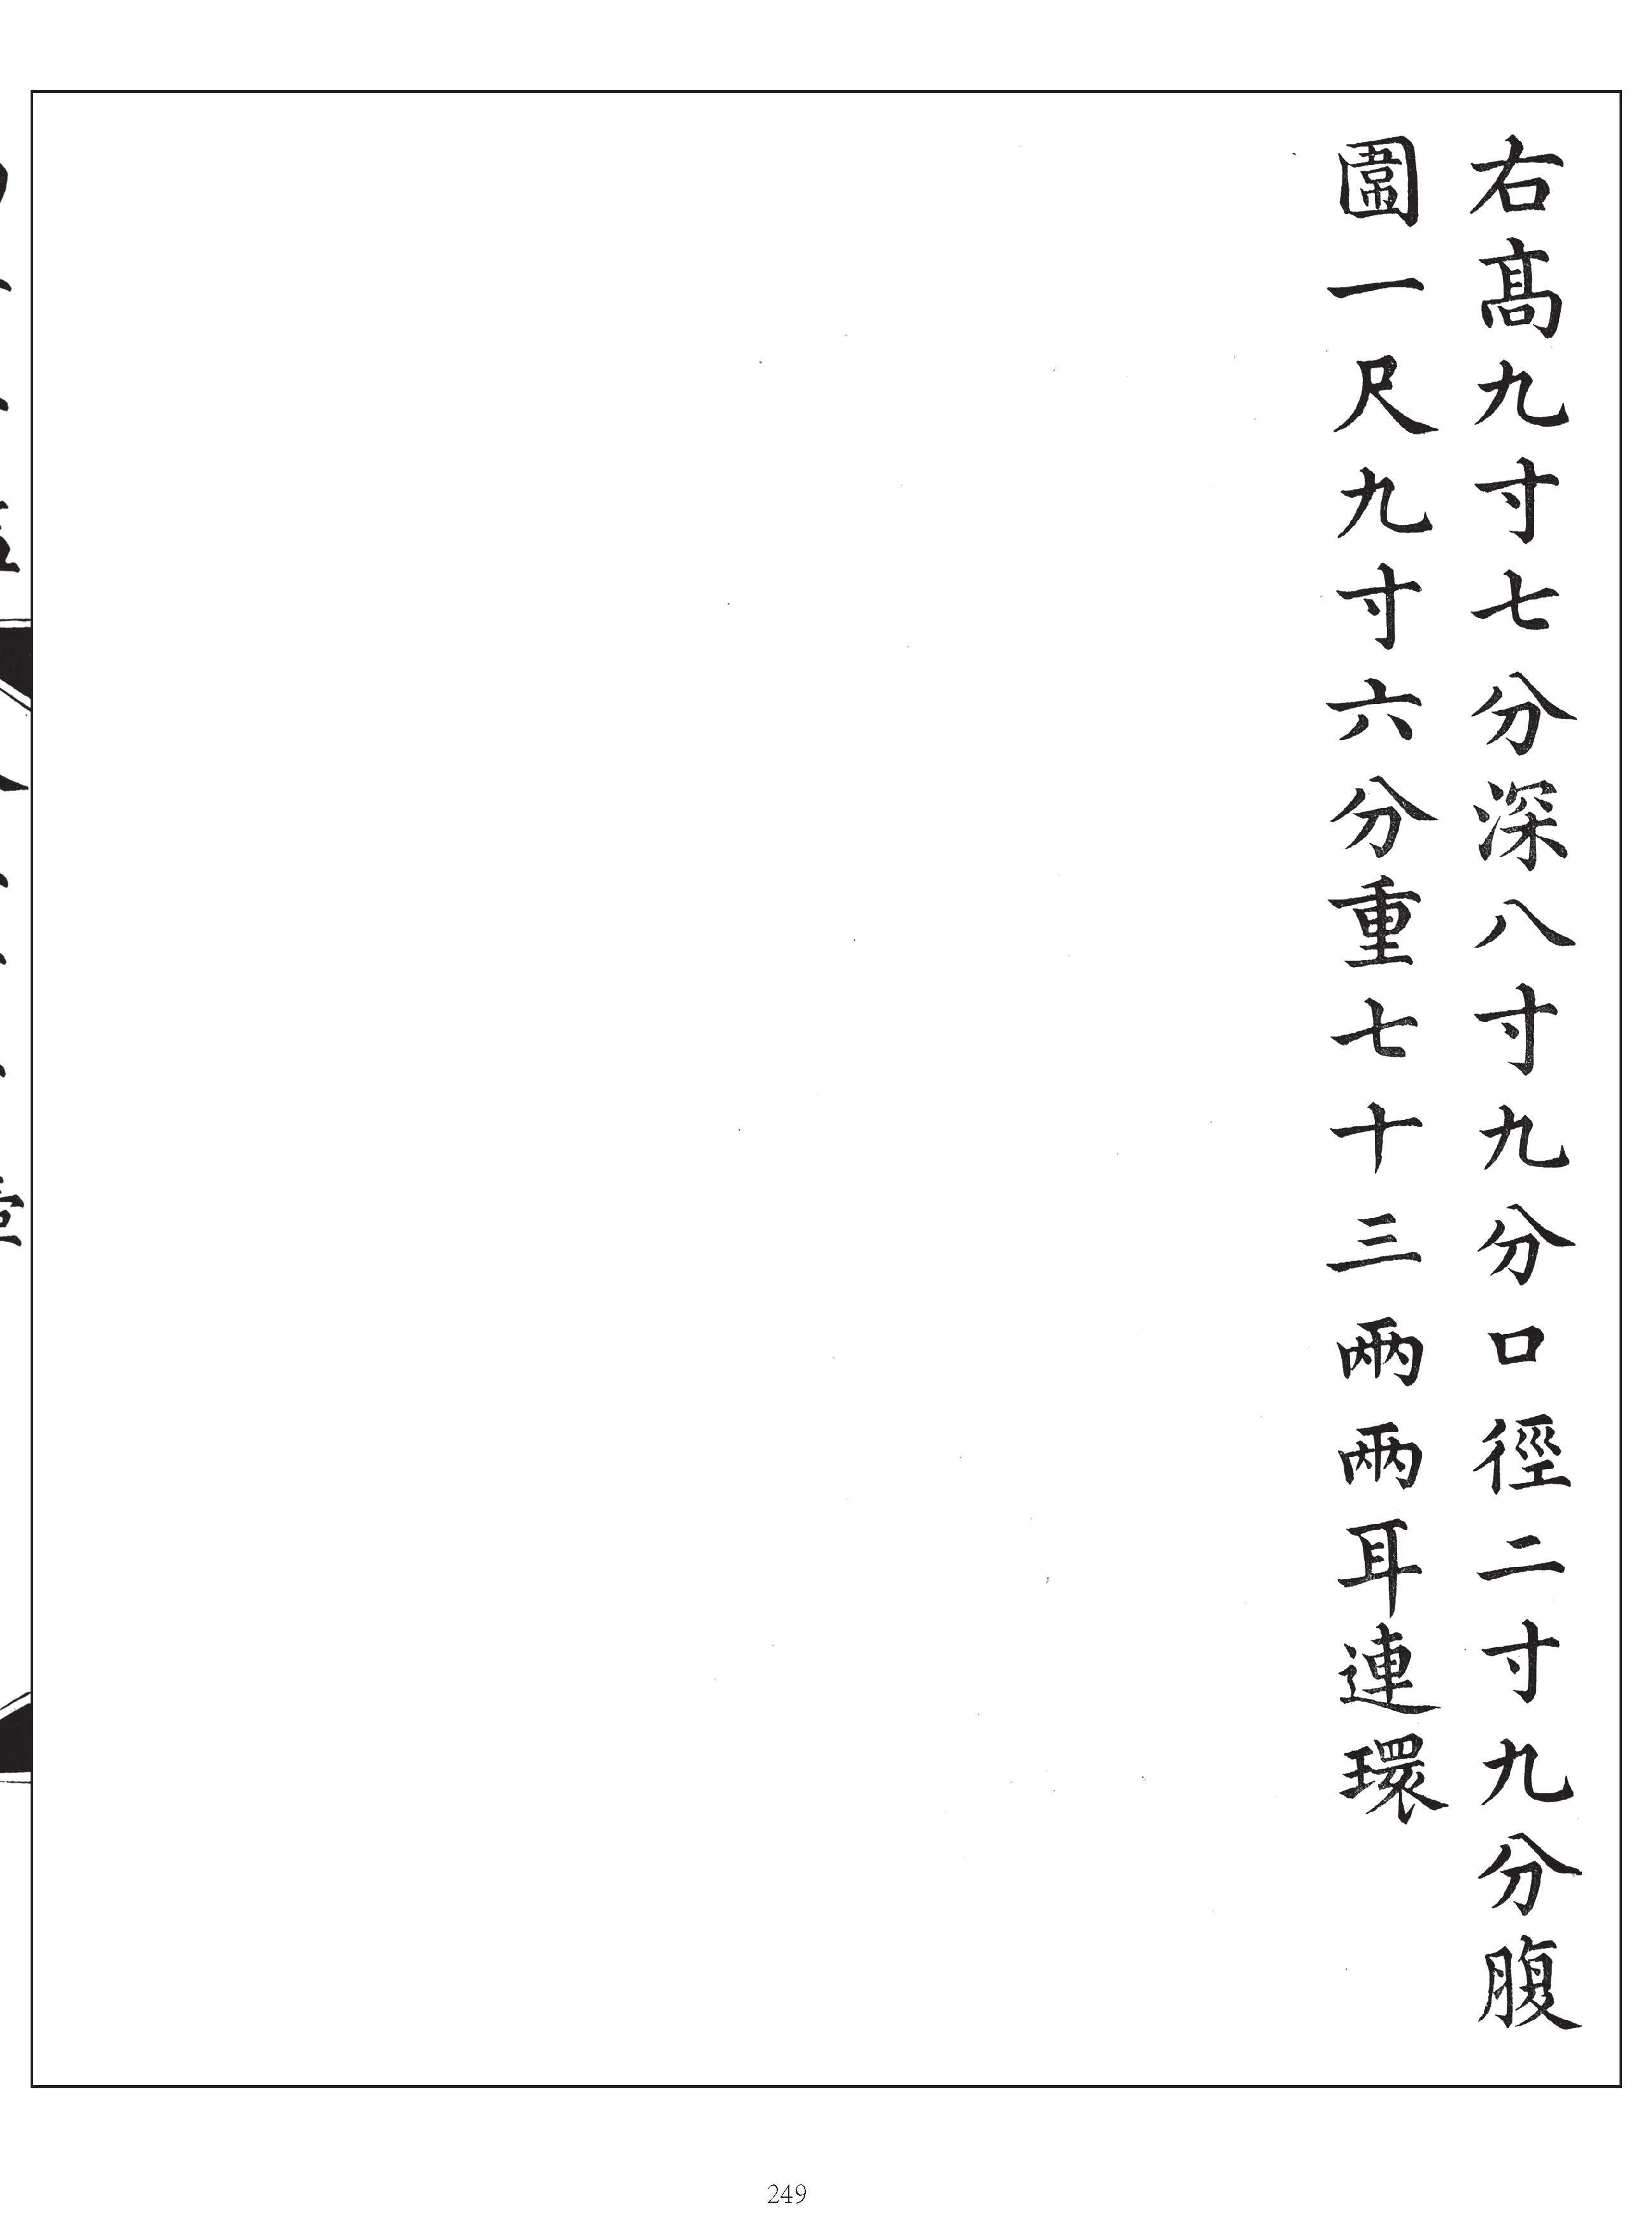 右髙九寸七分深八寸九分口徑二寸九分腹
圍一尺九寸六分重七十三兩兩耳連環
249